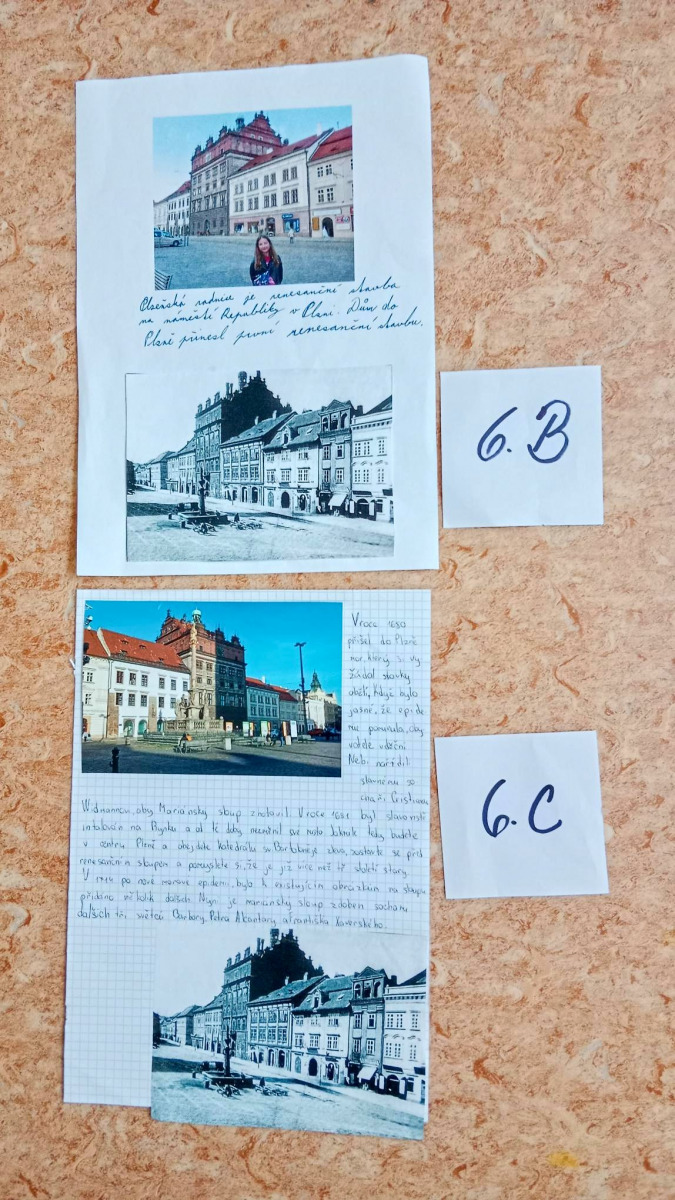 Plzeňská radnice je renesanční stavba
na náměstí Republiky v Plzni. Dům do
Plzně přinesl první renesanční stavbu.
6. B
V roce 1680
přišel do Plzně
mor, který si vy
žádal stovky
obětí, když bylo
jasné, že epide
mie pominula, aby
vzdáním
Nebi nařídil
slavnému so
chaři Cristianu
Widmannovi, aby Mariánský sloup zhotovil. V roce 1681 byl slavnostně
na Rynku a od té doby nezměnil své místo. Jakmile tedy budete
v centru Plzně a obejdete katedrálu sv. Bartoloměje zleva, zastavte se před
renesančním sloupem a pomyslete si, že je již více než tři století starý.
V 1714 po nové morové epidemii, bylo k existujícím obrazům na sloupu
přidáno několik dalších. Nyní je mariánský sloup zdoben sochami
dalších tří světců Barbory, Petra Alcantary, a Františka Xaverského.
6. C